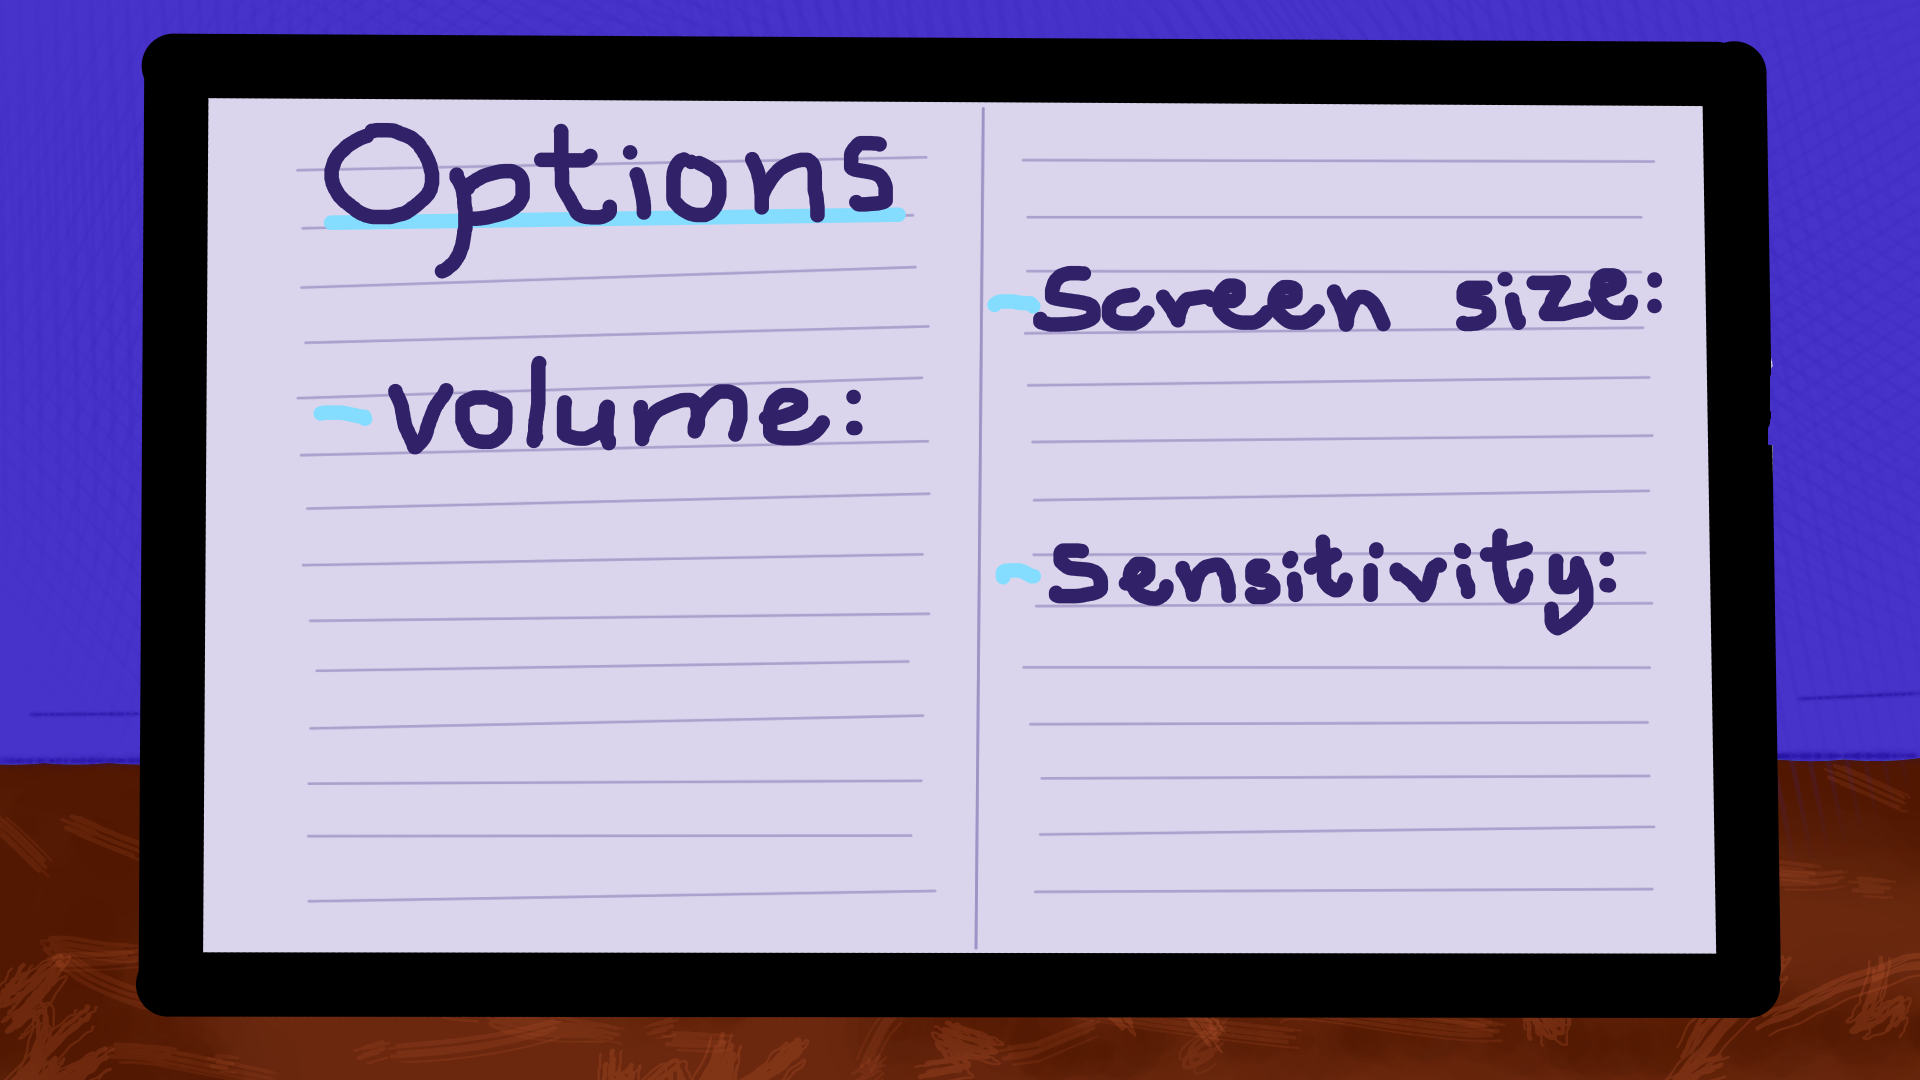 Options
- Volume:
- Screen size:
- Sensitivity: